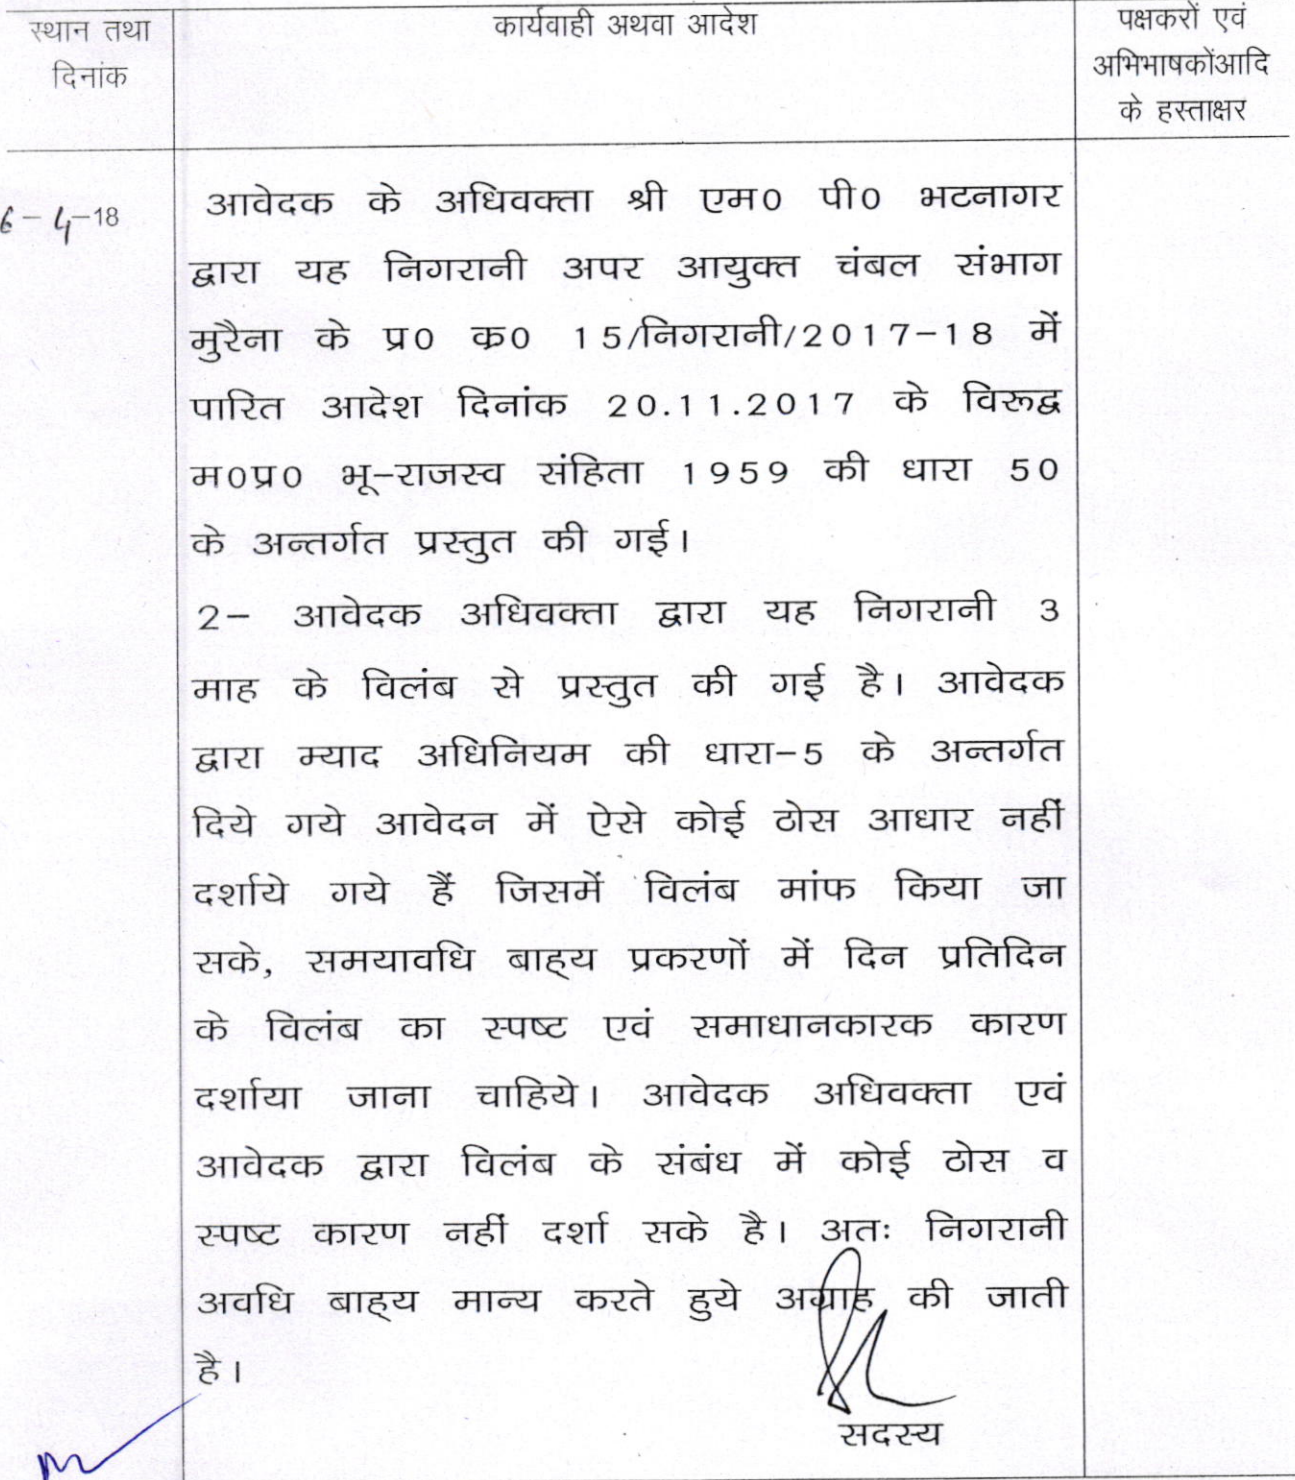 स्थान तथा
दिनांक
कार्यवाही अथवा आदेश
पक्षकरों एवं
अभिभाषकोंआदि
के हस्ताक्षर
6-4-18
आवेदक के अधिवक्ता श्री एम0 पी0 भटनागर
द्वारा यह निगरानी अपर आयुक्त चंबल संभाग
मुरैना के प्र0 क0 15/निगरानी/2017-18 में
पारित आदेश दिनांक 20.11.2017 के विरूद्व
म0प्र0 भू-राजस्व संहिता 1959 की धारा 50
के अन्तर्गत प्रस्तुत की गई।
2- आवेदक अधिवक्ता द्वारा यह निगरानी 3
माह के विलंब से प्रस्तुत की गई है। आवेदक
द्वारा म्याद अधिनियम की धारा-5 के अन्तर्गत
दिये गये आवेदन में ऐसे कोई ठोस आधार नहीं
दर्शाये गये हैं जिसमें विलंब मांफ किया जा
सके, समयावधि बाह्य प्रकरणों में दिन प्रतिदिन
के विलंब का स्पष्ट एवं समाधानकारक कारण
दर्शाया जाना चाहिये। आवेदक अधिवक्ता एवं
आवेदक द्वारा विलंब के संबंध में कोई ठोस व
स्पष्ट कारण नहीं दर्शा सके है। अतः निगरानी
अवधि बाह्य मान्य करते हुये अग्राह की जाती
है।
सदस्य